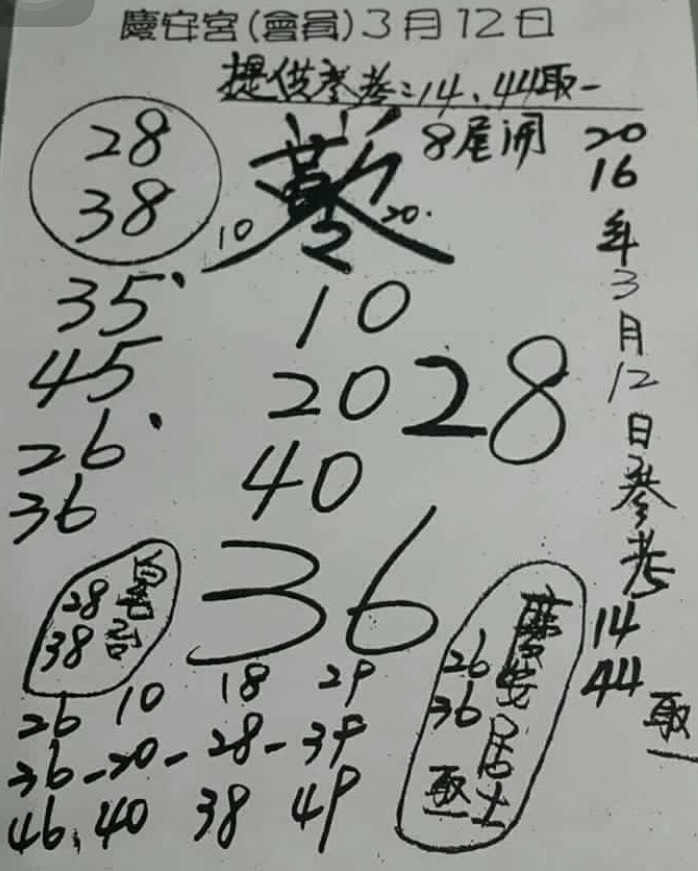 慶安宮(會員)3月12日
提供參考:14、44取一
8尾開
28
38
10
20.
2
35、
45
26、
36
10
20
40
28
36
28
38
26 10 18 29
36-20-28-39
46、40 38 49
慶安居士
26
36
取一
2016年3月12日參考
14
44
取一